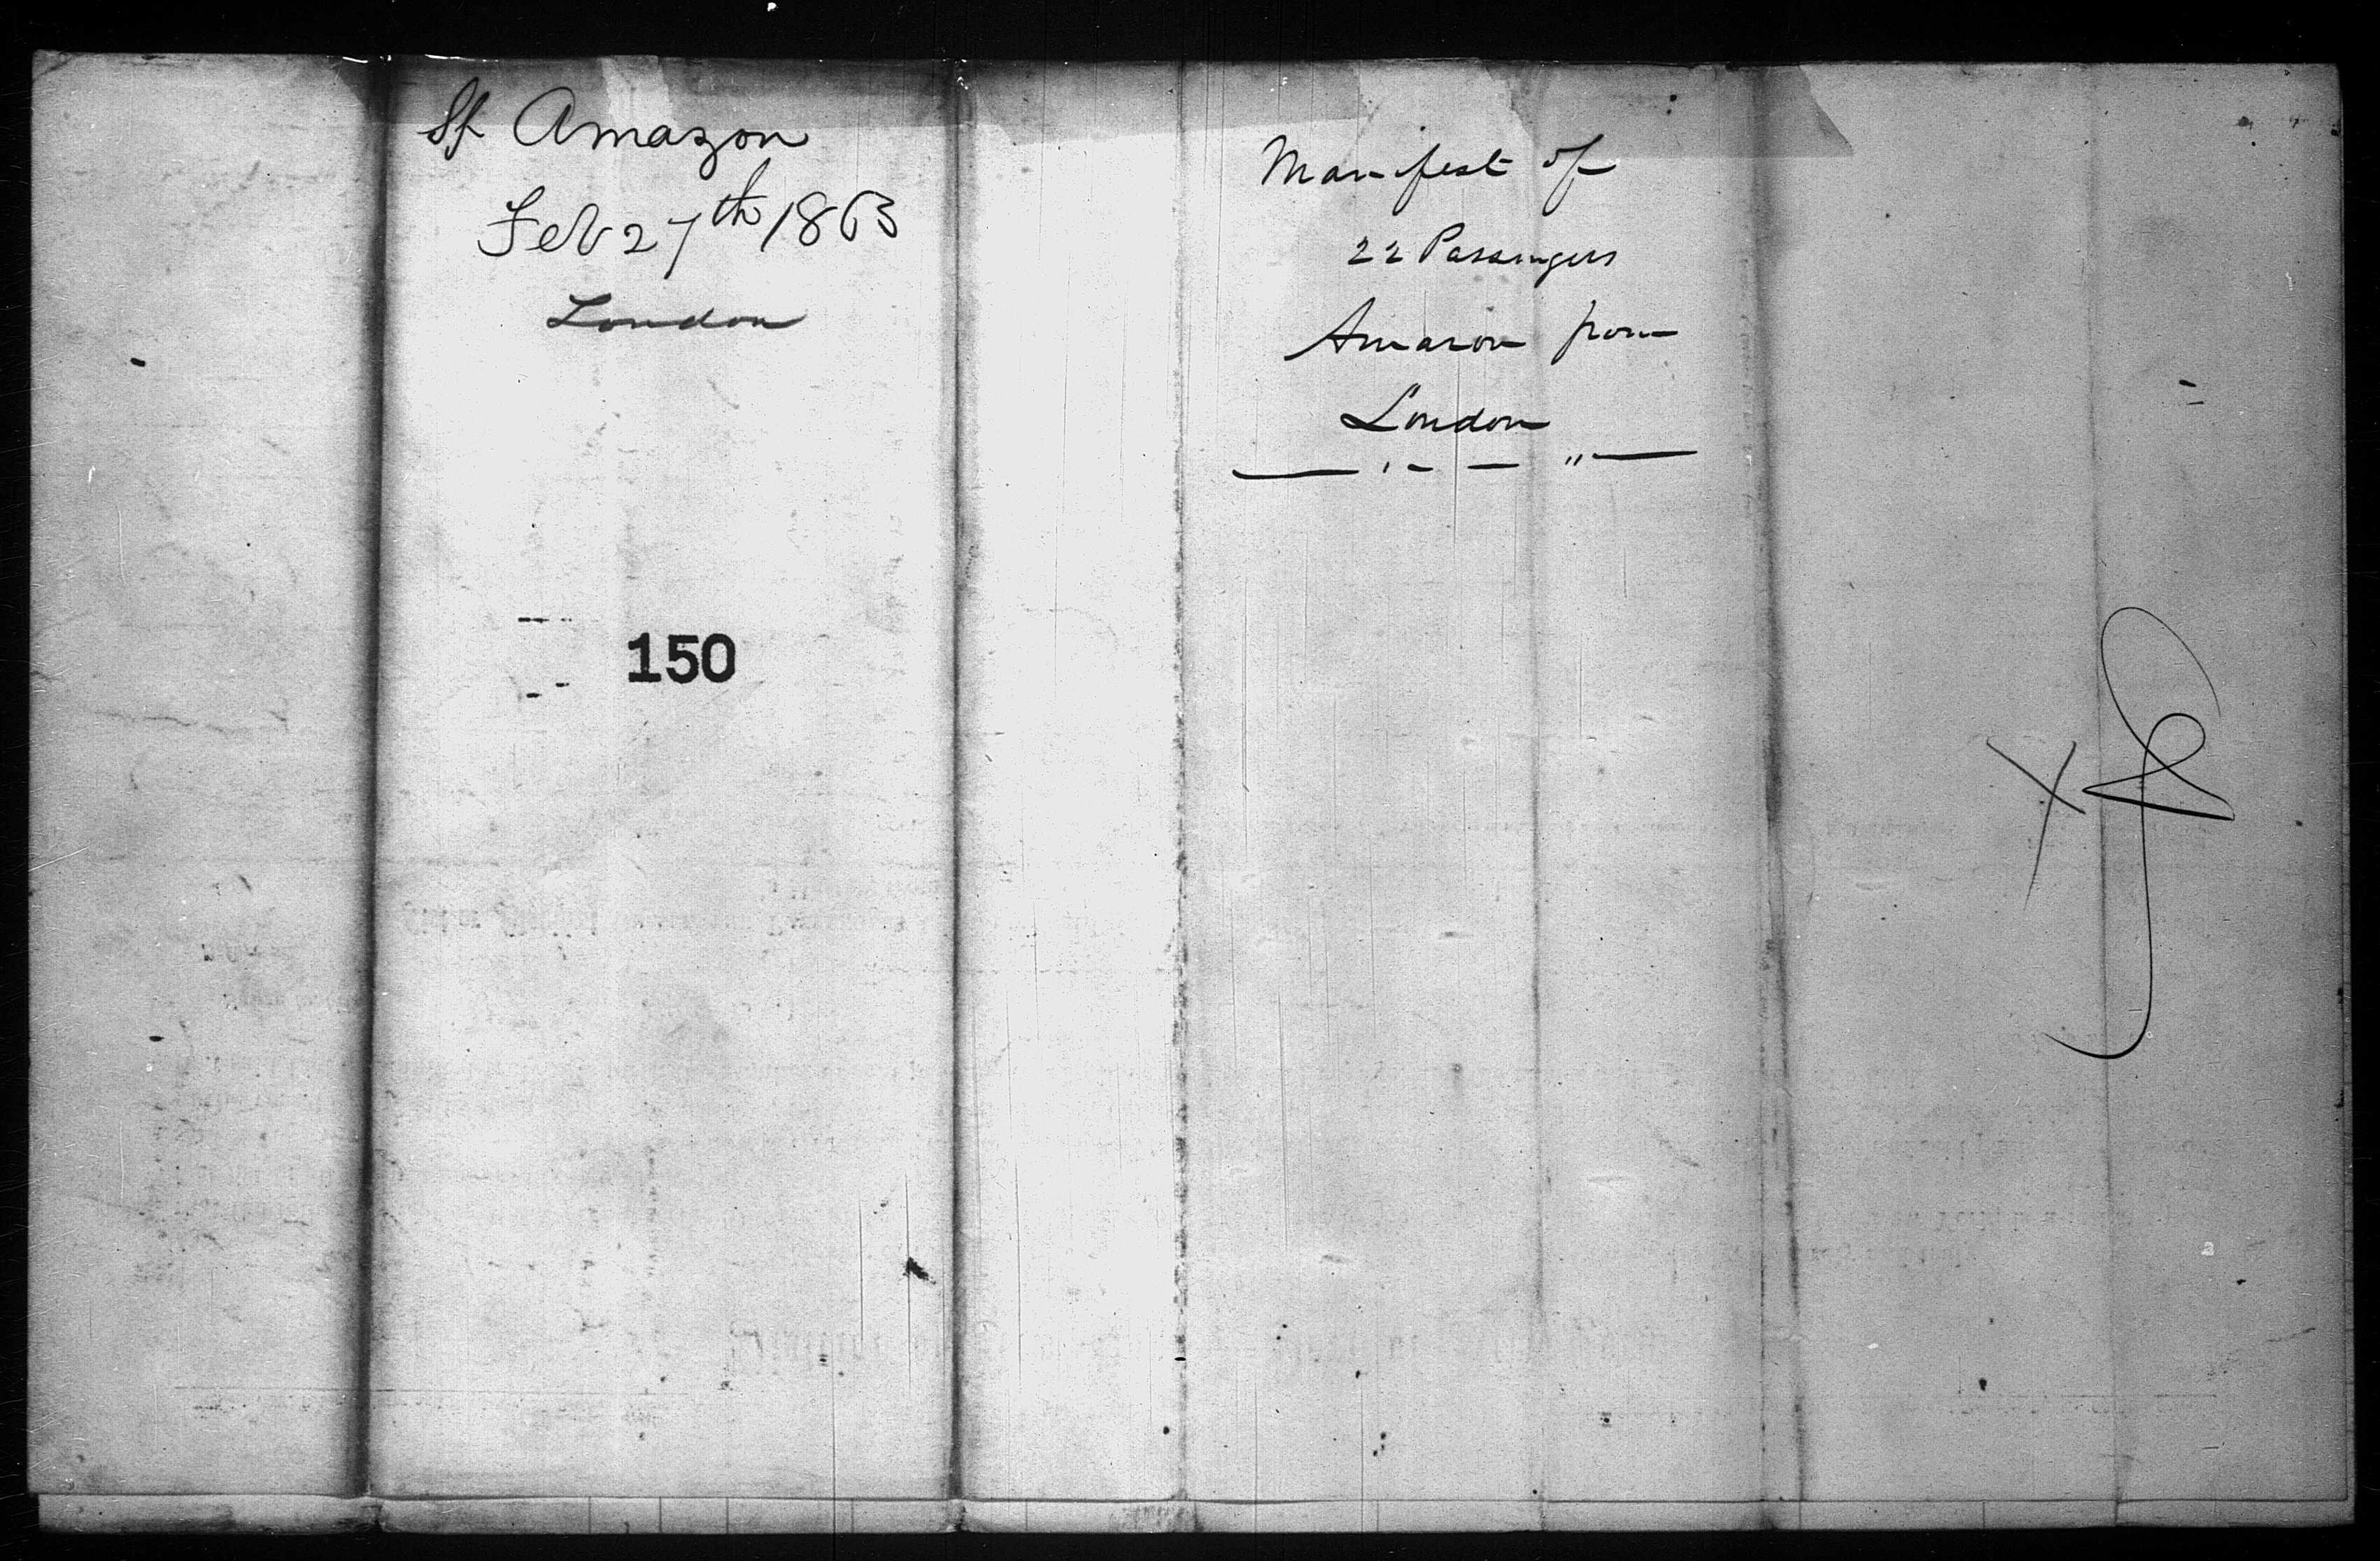 Sp Amazon
Feb 27th 1863
London
150
Manifest of
22 Passengers
Amazon from
London